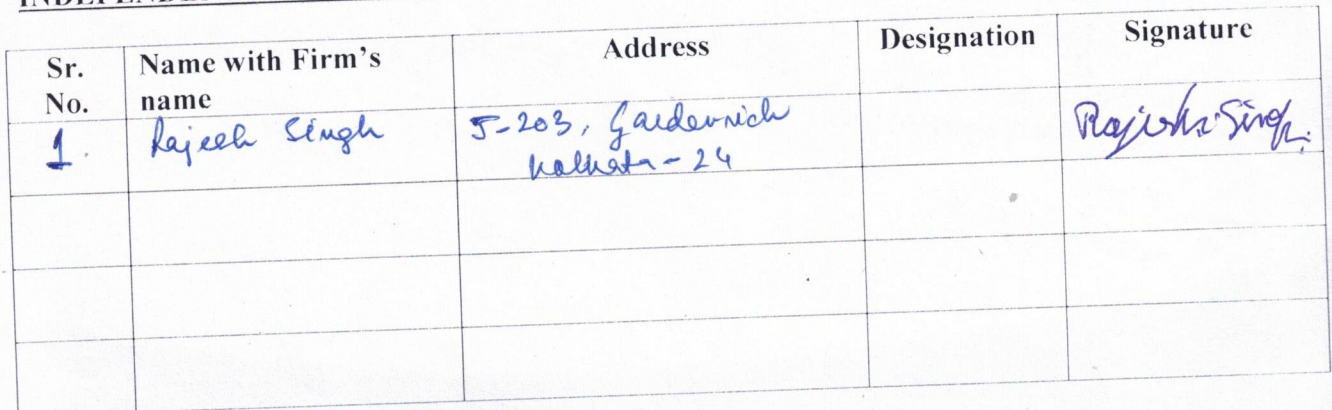 Sr. No.
Name with Firm's name
Address
Designation
Signature
1.
Rajesh Singh
J-203, Gardenrich
Kolkata - 24
Rajesh Singh.